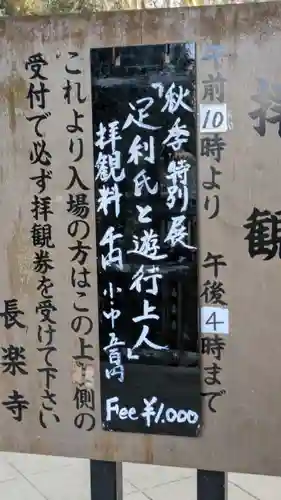 拝観
午前10時より 午後4時まで
秋季特別展
『足利氏と遊行上人』
拝観料 千円 小中五百円
Fee ¥1,000
これより入場の方はこの上り側の
受付で必ず拝観券を受けて下さい
長楽寺